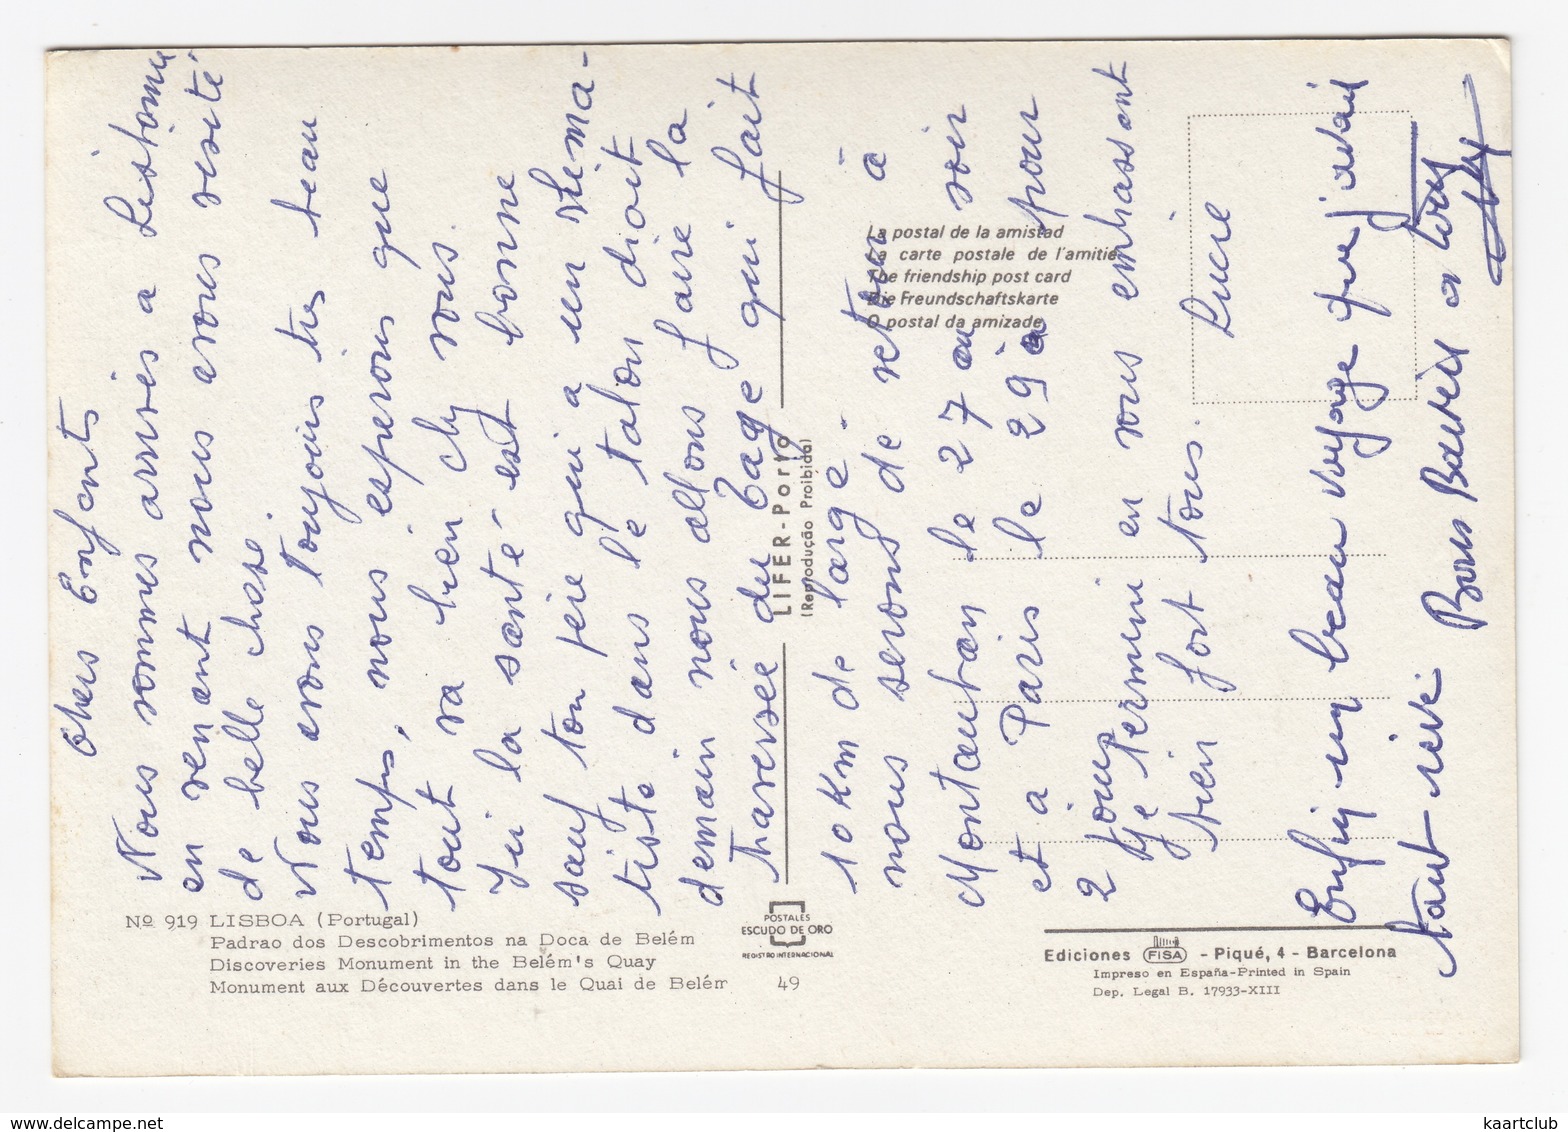 Chers Enfants
Nous sommes arrivés a Lisbonne
en venant nous avons visité
de belle chose.
Nous avons toujours très beau
temps, nous esperons que
tout va bien chz vous.
Ici la santé est bonne
sauf ton père qui a un rhéma-
tiste dans le talon droit
demain nous allons faire la
traversée du Tage qui fait
10 km de large.
nous serons de retour à
Montauban le 27 au soir
et a Paris le 29 pour
2 jours
Je termine en vous embrassant
bien fort tous.
Lucie
Enfin un beau voyage que j'avais
tant rêvé Bons Baisers a tous
La postal de la amistad
La carte postale de l'amitié
The friendship post card
Die Freundschaftskarte
O postal da amizade
LIFER-Porto
(Reprodução Proibida)
Nº 919 LISBOA (Portugal)
Padrao dos Descobrimentos na Doca de Belém
Discoveries Monument in the Belém's Quay
Monument aux Découvertes dans le Quai de Belém
POSTALES
ESCUDO DE ORO
REGISTRO INTERNACIONAL
49
Ediciones FISA - Piqué, 4 - Barcelona
Impreso en España-Printed in Spain
Dep. Legal B. 17933-XIII
kaartclub